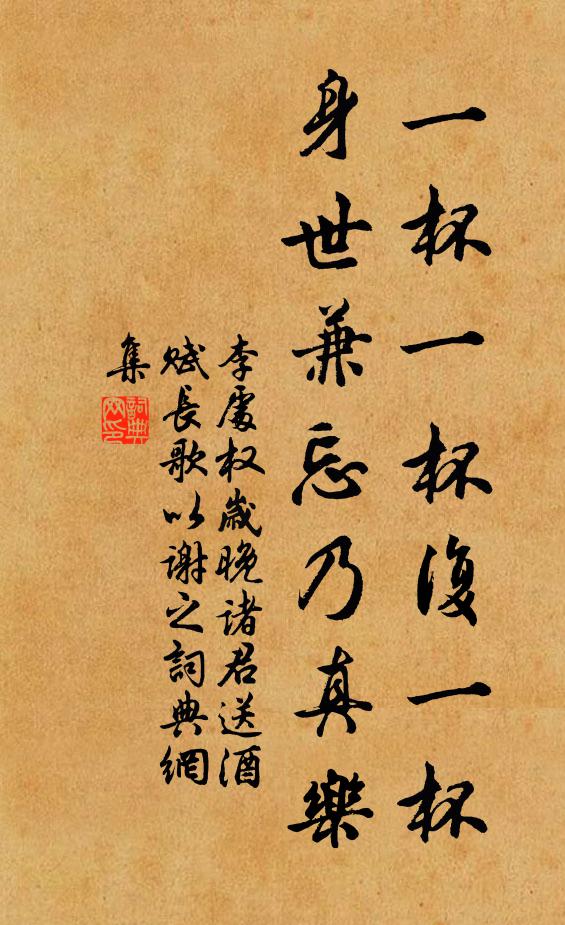 一杯一杯復一杯
身世兼忘乃真樂
李處权歲晚诸君送酒
赋長歌以謝之詞典網
集
詞典网印